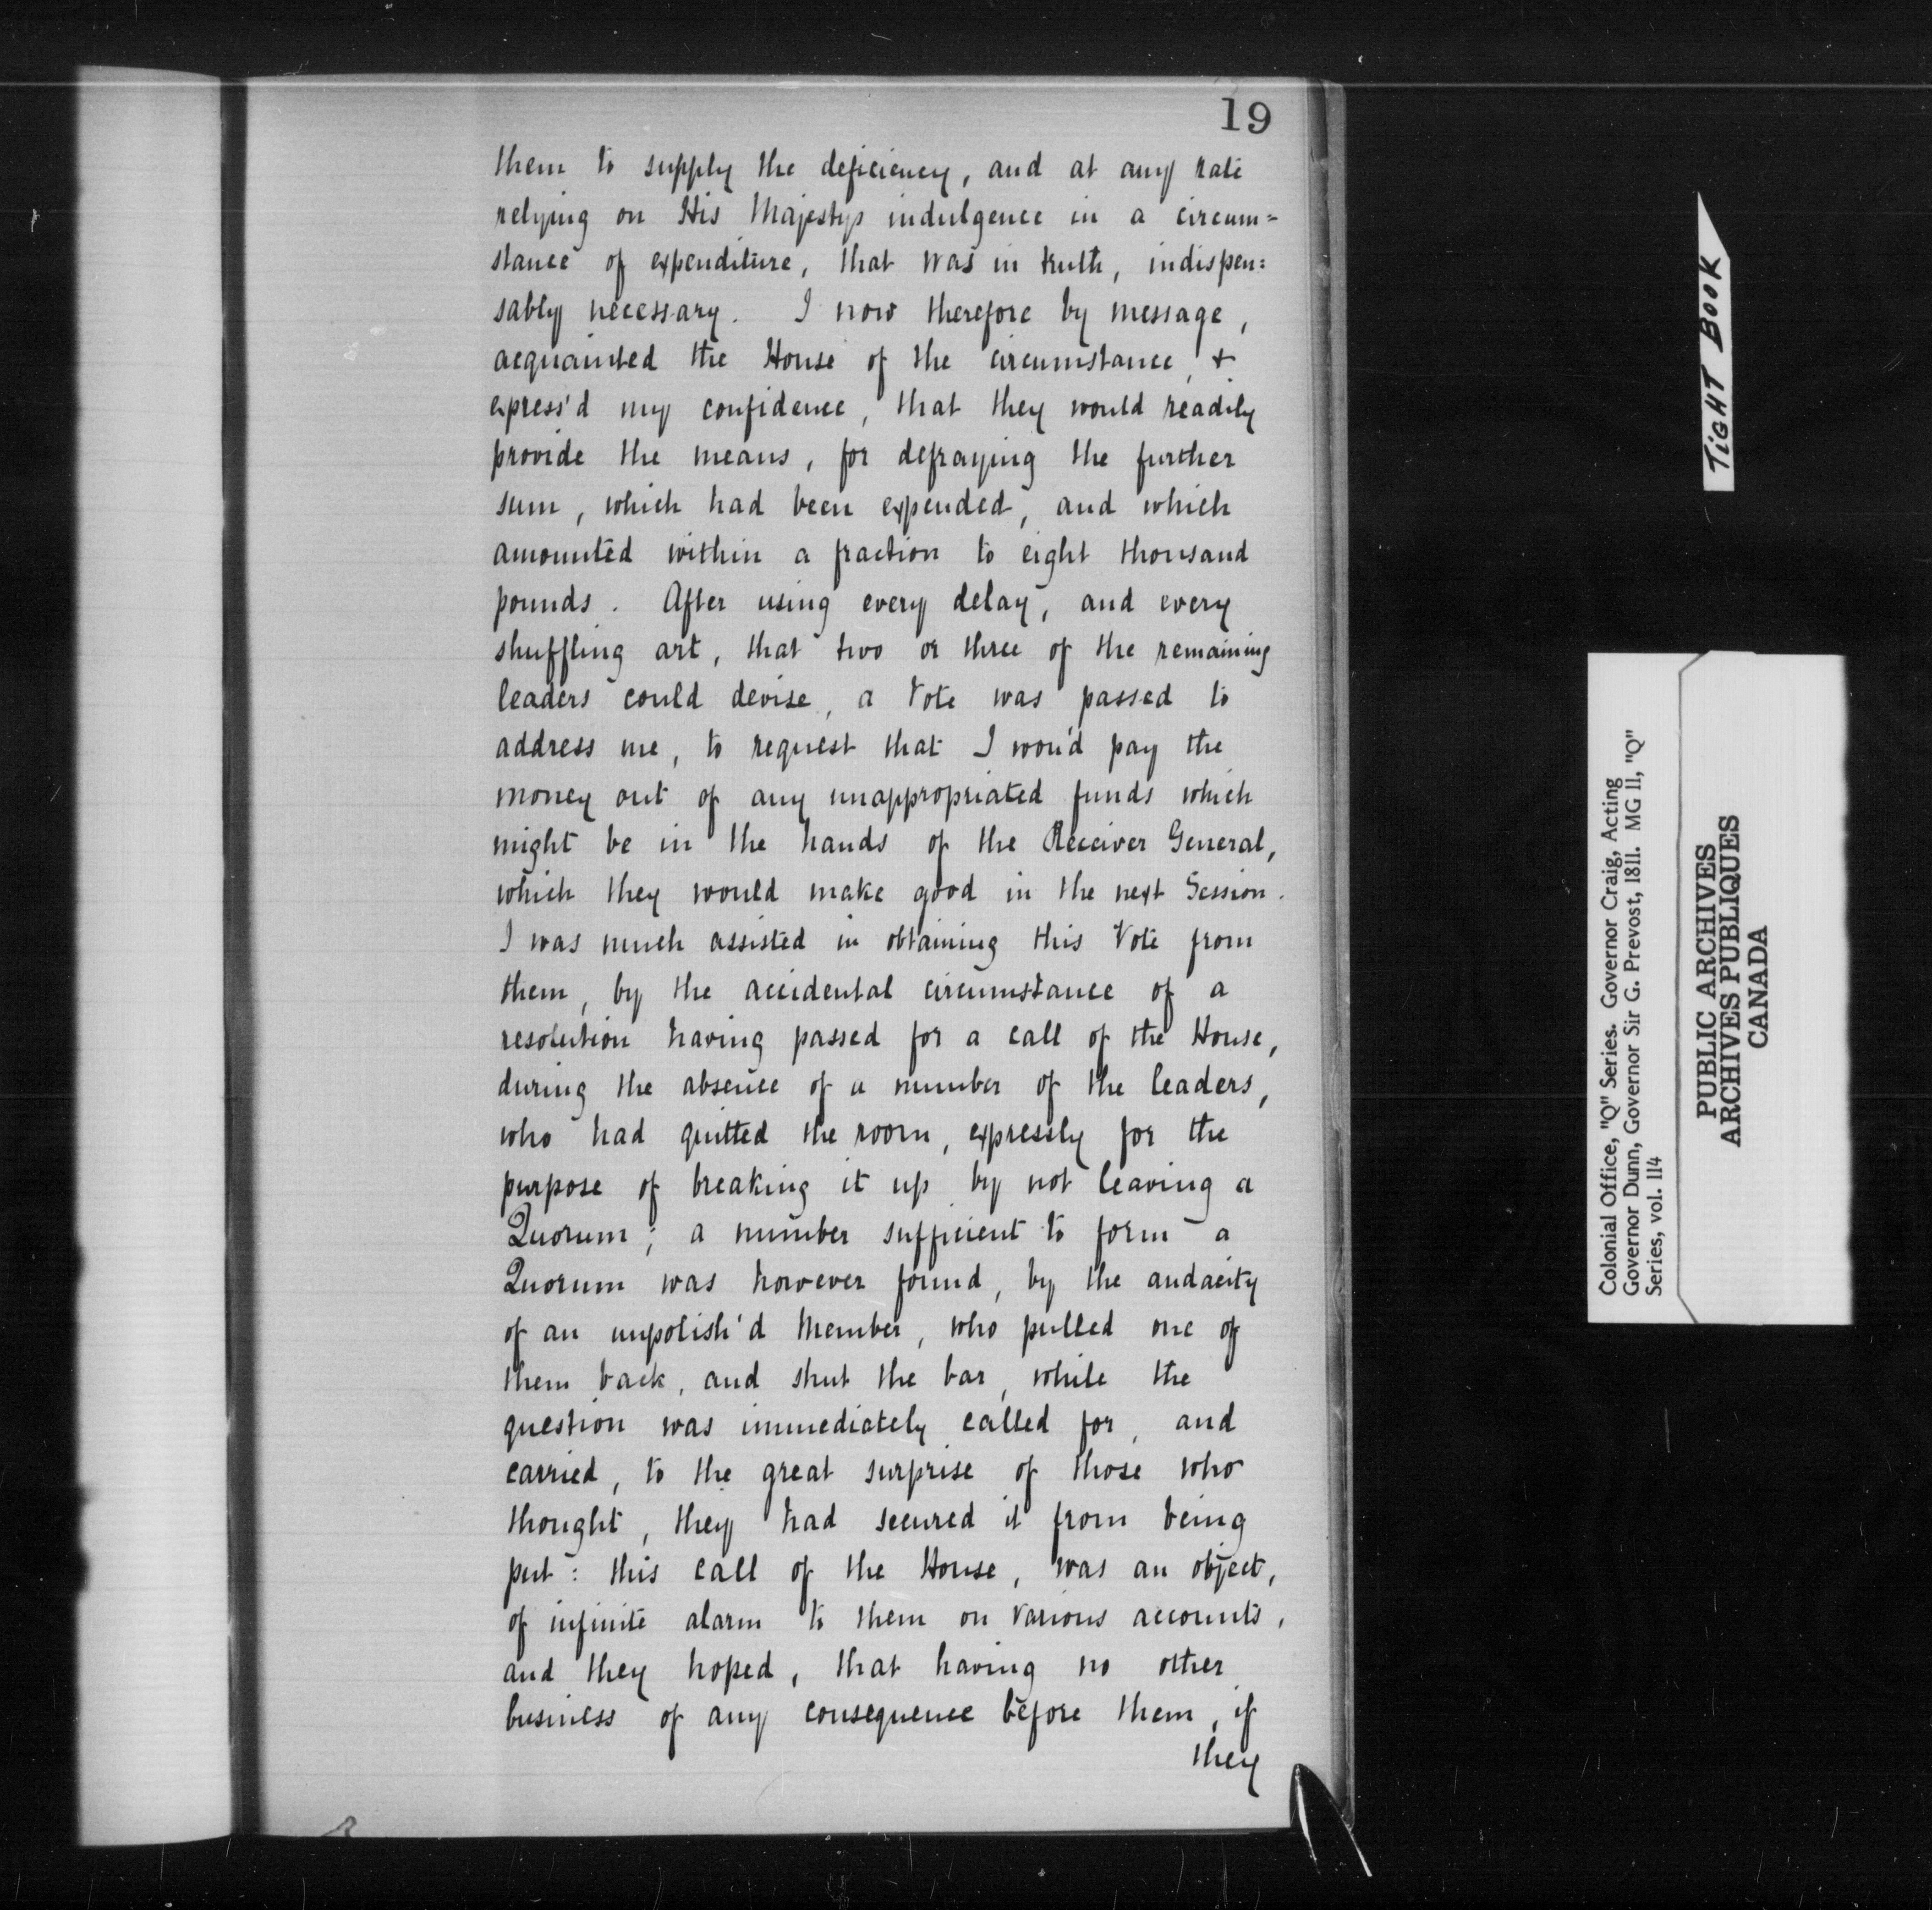 19
them to supply the deficiency, and at any rate
relying on His Majestys indulgence in a circum=
stance of expenditure, that was in truth, indispen=
sably necessary. I now therefore by message,
acquainted the House of the circumstance, &
express'd my confidence, that they would readily
provide the means, for defraying the further
sum, which had been expended, and which
amounted within a fraction to eight thousand
pounds. After using every delay, and every
shuffling art, that two or three of the remaining
leaders could devise, a Vote was passed to
address me, to request that I wou'd pay the
money out of any unappropriated funds which
might be in the hands of the Receiver General,
which they would make good in the next Session.
I was much assisted in obtaining this Vote from
them, by the accidental circumstance of a
resolution having passed for a call of the House,
during the absence of a number of the leaders,
who had quitted the room, expressly for the
purpose of breaking it up by not leaving a
Quorum; a number sufficient to form a
Quorum was however found, by the audacity
of an unpolish'd Member, who pulled one of
them back, and shut the bar, while the
question was immediately called for, and
carried, to the great surprise of those who
thought, they had secured it from being
put: this call of the House, was an object,
of infinite alarm to them on various accounts,
and they hoped, that having no other
business of any consequence before them, if
they
TIGHT BOOK
Colonial Office, "Q" Series. Governor Craig, Acting
Governor Dunn, Governor Sir G. Prevost, 1811. MG 11, "Q"
Series, vol. 114
PUBLIC ARCHIVES
ARCHIVES PUBLIQUES
CANADA